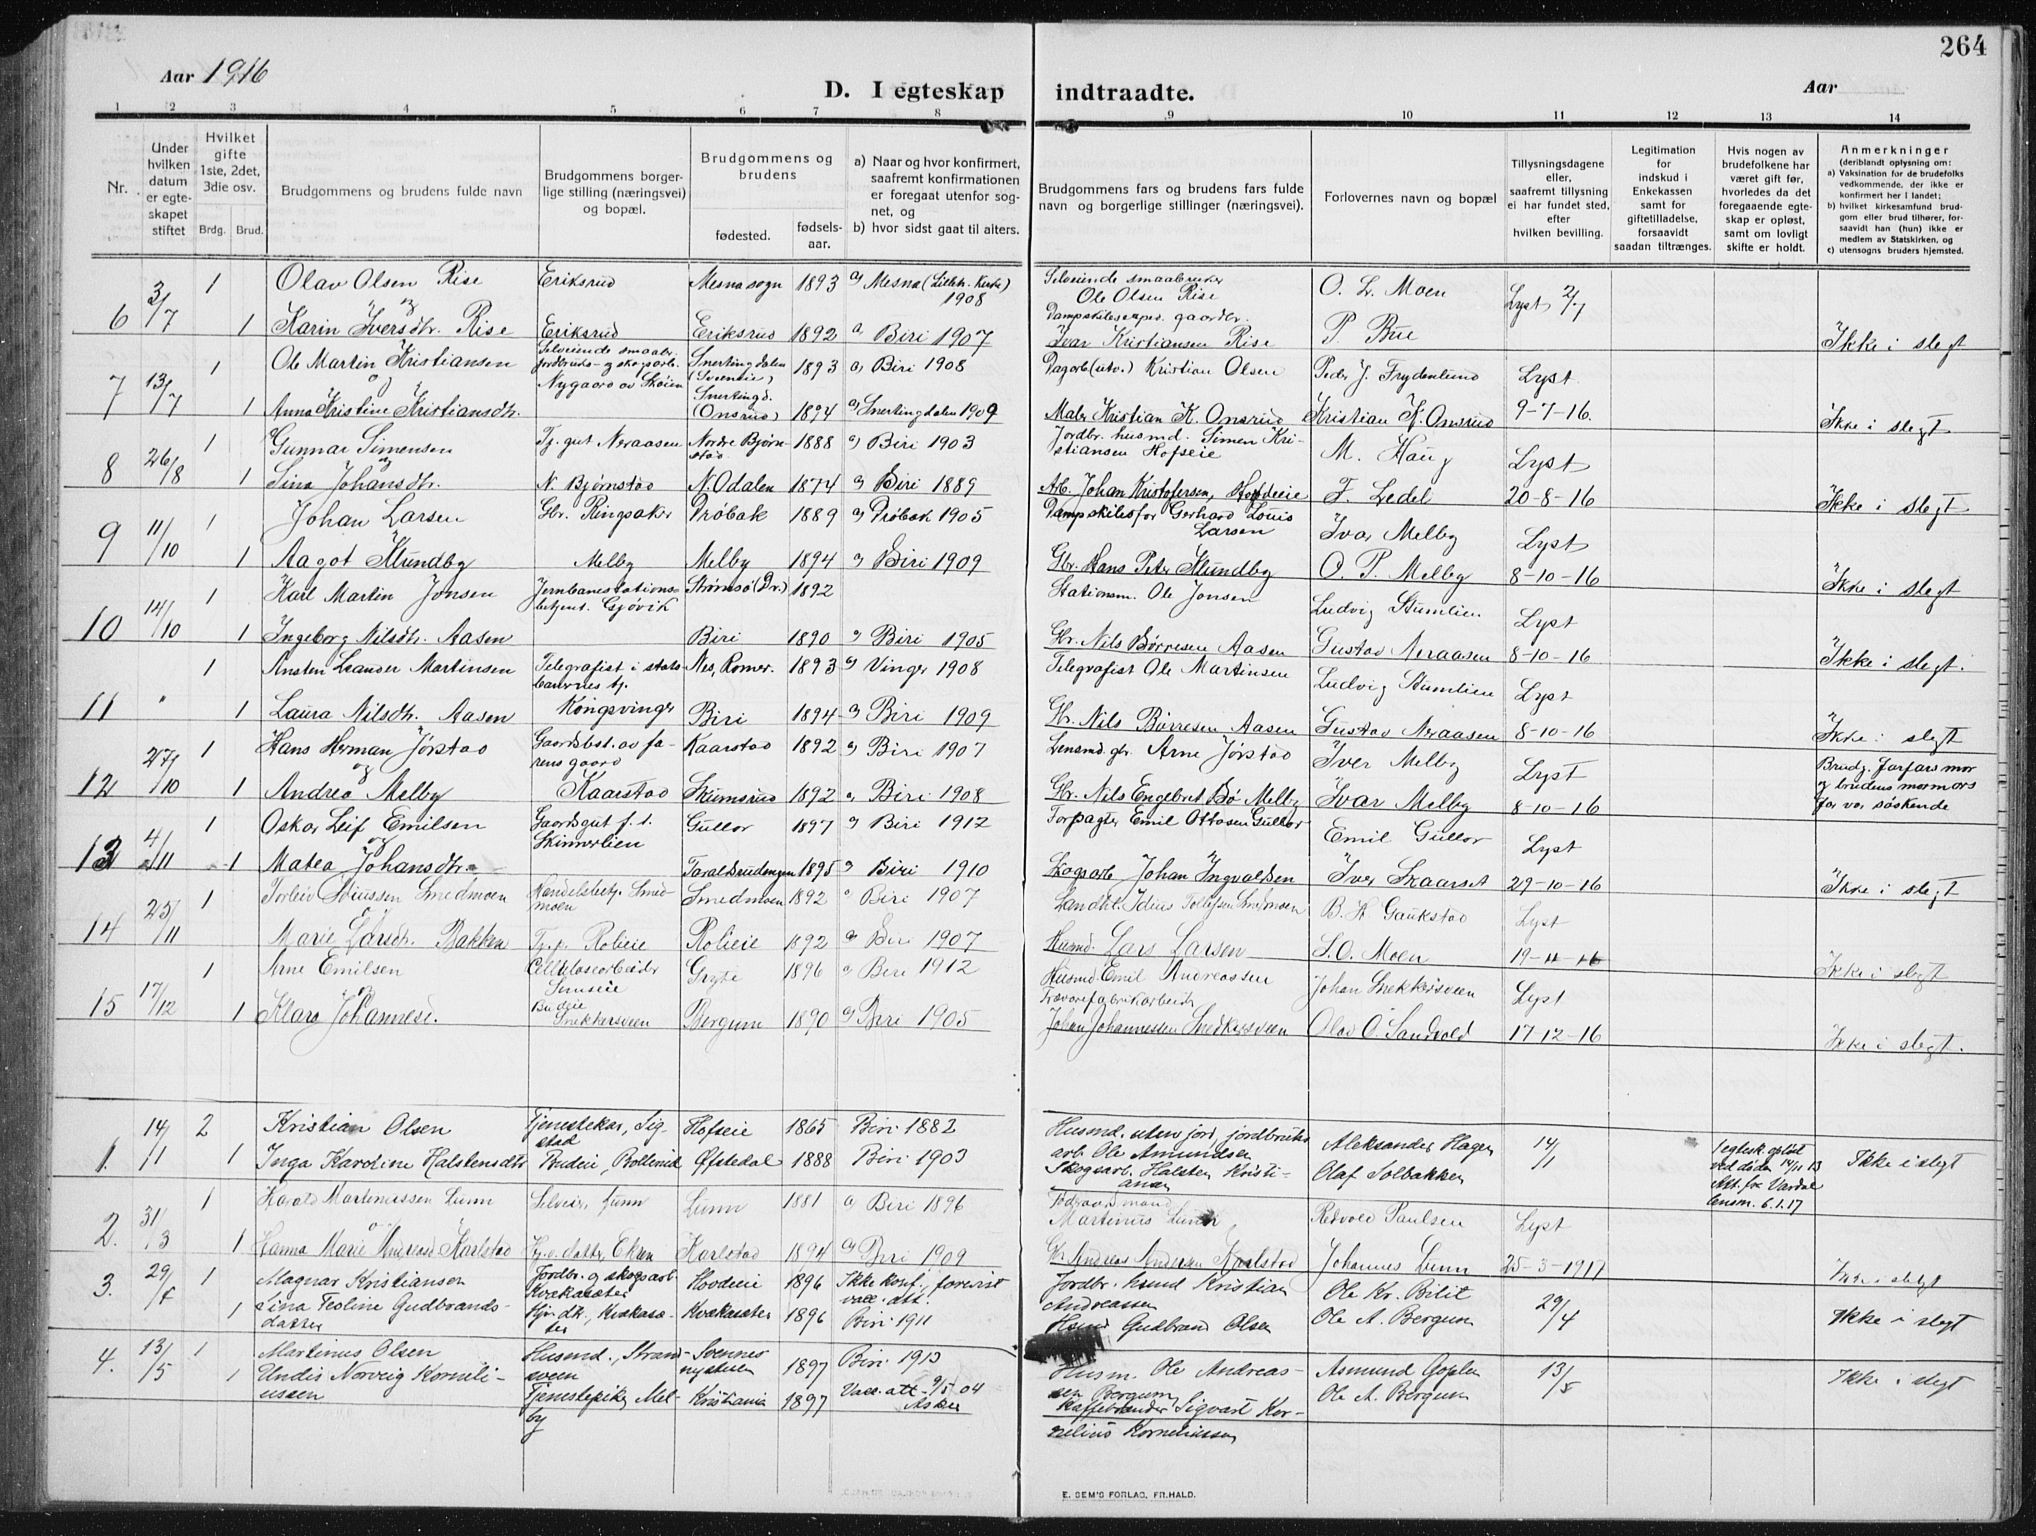 264
Aar 1916
D. I egteskap indtraadte.
Aar
1 2 3 4 5 6 7 8 9 10 11 12 13 14
Nr.
Under hvilken datum er egteskapet stiftet
Hvilket gifte 1ste, 2det, 3die osv.
Brdg. Brud.
Brudgommens og brudens fulde navn
Brudgommens borgerlige stilling (næringsvei) og bopæl.
Brudgommens og brudens
fødested.
fødselsaar.
a) Naar og hvor konfirmert, saafremt konfirmationen er foregaat utenfor sognet, og
b) hvor sidst gaat til alters.
Brudgommens fars og brudens fars fulde navn og borgerlige stillinger (næringsvei).
Forlovernes navn og bopæl
Tillysningsdagene eller, saafremt tillysning ei har fundet sted, efter hvilken bevilling.
Legitimation for indskud i Enkekassen samt for giftetilladelse, forsaavidt saadan tiltrænges.
Hvis nogen av brudefolkene har været gift før, hvorledes da det foregaaende egteskap er opløst, samt om lovligt skifte er holdt.
Anmerkninger
(deriblandt oplysning om:
a) Vaksination for de brudefolks vedkommende, der ikke er konfirmert her i landet;
b) hvilket kirkesamfund brudgom eller brud tilhører, forsaavidt han (hun) ikke er medlem av Statskirken, og
c) utensogns bruders hjemsted.
6 3/7 1 Olav Olsen Rise Eriksrud Mesna sogn 1893 a) Mesna (Lilleh. Kirke) 1908 Selveiende smaabruker Ole Olsen Rise O. L. Moen Lyst 2/7
og
1 Karin Iversdtr. Rise Eriksrud Eriksrud 1892 a Biri 1907 Dampskibsexped. gaardbr. Ivar Kristiansen Rise P. Bue Ikke i slegt
7 13/7 1 Ole Martin Kristiansen Selveiende smaabr. jordbruks- og skogsarb. Nygaard av Skøien Snertingdalen (Sveneie) 1893 a) Biri 1908 Dagarb (utv.) Kristian Olsen Peder J. Frydenlund Lyst
og
1 Anna Kristine Kristiansdtr. Snertingd. (Onsrud) 1894 a) Snertingdalen 1909 Maler Kristian K. Onsrud Kristian K. Onsrud 9-7-16. Ikke i slegt
8 26/8 1 Gunnar Simensen Tj. gut Neraasen Nordre Bjørnstad 1888 a) Biri 1903 Jordbr. husmd. Simen Kristiansen Hofseie M. Haug Lyst
og
1 Lina Johansdtr. N. Bjørnstad N. Odalen 1874 a) Biri 1889 Arb. Johan Kristofersen, F. Ledel 20-8-16 Ikke i slegt
9 11/10 1 Johan Larsen Gbr. Ringsaker Drøbak 1889 a) Drøbak 1905 Dampskibsfor Gerhard Louis Larsen Ivar Melby Lyst
1 Aagot Klundby Melby Melby 1894 a) Biri 1909 Gbr. Hans Peter Klundby O. P. Melby 8-10-16 Ikke i slegt
10 14/10 1 Karl Martin Jonsen Jernbanestations-betjent. Gjøvik Strømsø (Dr.) 1892 Stationsm. Ole Jonsen Ludvig Stumlien Lyst
1 Ingeborg Nilsdtr. Aasen Biri 1890 a) Biri 1905 Gbr. Nils Børresen Aasen Gustav Neraasen 8-10-16 Ikke i slegt.
11 " 1 Ansten Leander Martinsen Telegrafist i statsbanernes tj. Kongsvinger Nes, Romer. 1893 a) Vinger 1908 Telegrafist Ole Martinsen Ludvig Stumlien Lyst
1 Laura Nilsdtr. Aasen Biri 1894 a) Biri 1909 Gbr. Nils Børresen Aasen Gustav Neraasen 8-10-16 Ikke i slegt
12 27/10 1 Hans Herman Jørstad Gaardsbest. av farens gaard Kaarstad 1892 a) Biri 1907 Lensmd. gbr. Arne Jørstad Iver Melby Lyst Brudg. farfars mor
og
1 Andrea Melby Kaarstad Skumsrud 1892 a) Biri 1908 Gbr. Nils Engebret Bø Melby Ivar Melby 8-10-16 og brudens mormors far var søskende
13 4/11 1 Oskar Leif Emilsen Gaardsgut f. t. Skinnerlien Gullor 1897 a) Biri 1912 Forpagter Emil Ottosen Gullor Emil Gullor Lyst
og
1 Matea Johansdtr. Taralsrudengen 1895 a) Biri 1910 Skogsarb. Johan Ingvaldsen Iver Skaarset 29-10-16 Ikke i slegt
14 25/11 1 Smedmoen Handelsbetj. Smedmoen Smedmoen 1892 a) Biri 1907 Landhl. Smedmoen B. H. Gaukstad Lyst
1 Marie Larsdtr. Bakken Tj.p. Rolieie Rolieie 1892 a) Biri 1907 Husmd. Lars Larsen S. O. Moen 19-11-16 Ikke i slegt
15 17/12 1 Arne Emilsen Cellulosearbeider 1896 a) Biri 1912 Husmd Emil Andreassen Johan Snekkersveen Lyst
og
1 Klara Johannesd. Budeie Snekkersveen Bergum 1890 a) Biri 1905 Trævarefabrikarbeider Johan Johannessen Snekkersveen Olav O. Sandvold 17-12-16 Ikke i slegt.
1. 14/1 2 Kristian Olsen Tjenestekar, Sigstad Hofseie 1865 Biri 1882 Husmd. uten jord, jordbruksarb. Ole Amundsen Aleksander Hagen 14/1 1 egtesk. opløst ved døden 14/11 13 Att. fra Vardal lensm. 6.1.17 Ikke i slegt
1 Inga Karoline Halstensdtr Budeie, Bollerud Øfstedal 1888 Biri 1903 Skogsarb. Halsten Kristiansen Olaf Solbakken
2. 31/3 1 Harald Martinussen Lunn Selveier, Lunn Lunn 1881 a) Biri 1896 Martinus Lunn Redvald Paulsen Lyst
1 Hanna Marie Andreasd. Karlstad Karlstad 1894 a) Biri 1909 Gbr. Andreas Andersen Karlstad Johannes Lunn 25-3-1917 Ikke i slegt
3. 29/4 1 Magnar Kristiansen Jordbr. og skogsarb. Kvækasæter Hovdeeie 1896 Ikke konf., forevist vacc. att. Jordbr. husmd Kristian Andreassen Ole Kr. Bilit 29/4 Ikke i slegt
1 Lina Teoline Gudbrandsdatter Hjv. dtr., Kvækasæter Kvækasæter 1896 Biri 1911 Husmd Gudbrand Olsen Ole A. Bergum
4. 13/5 1 Martinus Olsen Husmd., Strandsveen Svennesnystuen 1897 Biri 1913 Husm. Ole Andreassen Bergum Asmund Goplen 13/5 Ikke i slegt
1 Undis Norveig Korneliussen Tjenestepike, Melby Kristiania 1897 Vacc. att 9/5 04 Asker Kaffebrænder Sigvart Kornelius Korneliussen Ole A. Bergum
E. SEM'S FORLAG, FR.HALD.